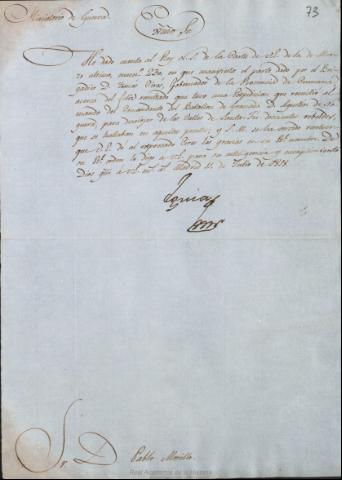 Ministerio de Guerra.
73
He dado cuenta al Rey N. S. de la Carta de V.E. de 12 de Marzo
ultimo, num.º en que manifiesta el parte dado por el Brigadier
D. Tomas Cires, Gobernador de la Provincia de Cumaná,
acerca del feliz resultado que tuvo una Expedicion que remitió al
mando del Comandante del Batallon de Granada D. Agustin de
Noguera, para desalojar de los Valles de Santa Fee doscientos rebeldes,
que se hallaban en aquellos puntos; y S. M. se ha servido resolver
que V.E. dé al expresado Cires las gracias en su Rl. nombre. De
su Rl. orden lo digo a V.E. para su inteligencia y cumplimiento.
Dios gue. a V.E. ms. as. Madrid 11 de Julio de 1818.
Eguia
Sr. D. Pablo Morillo.
Real Academia de la Historia